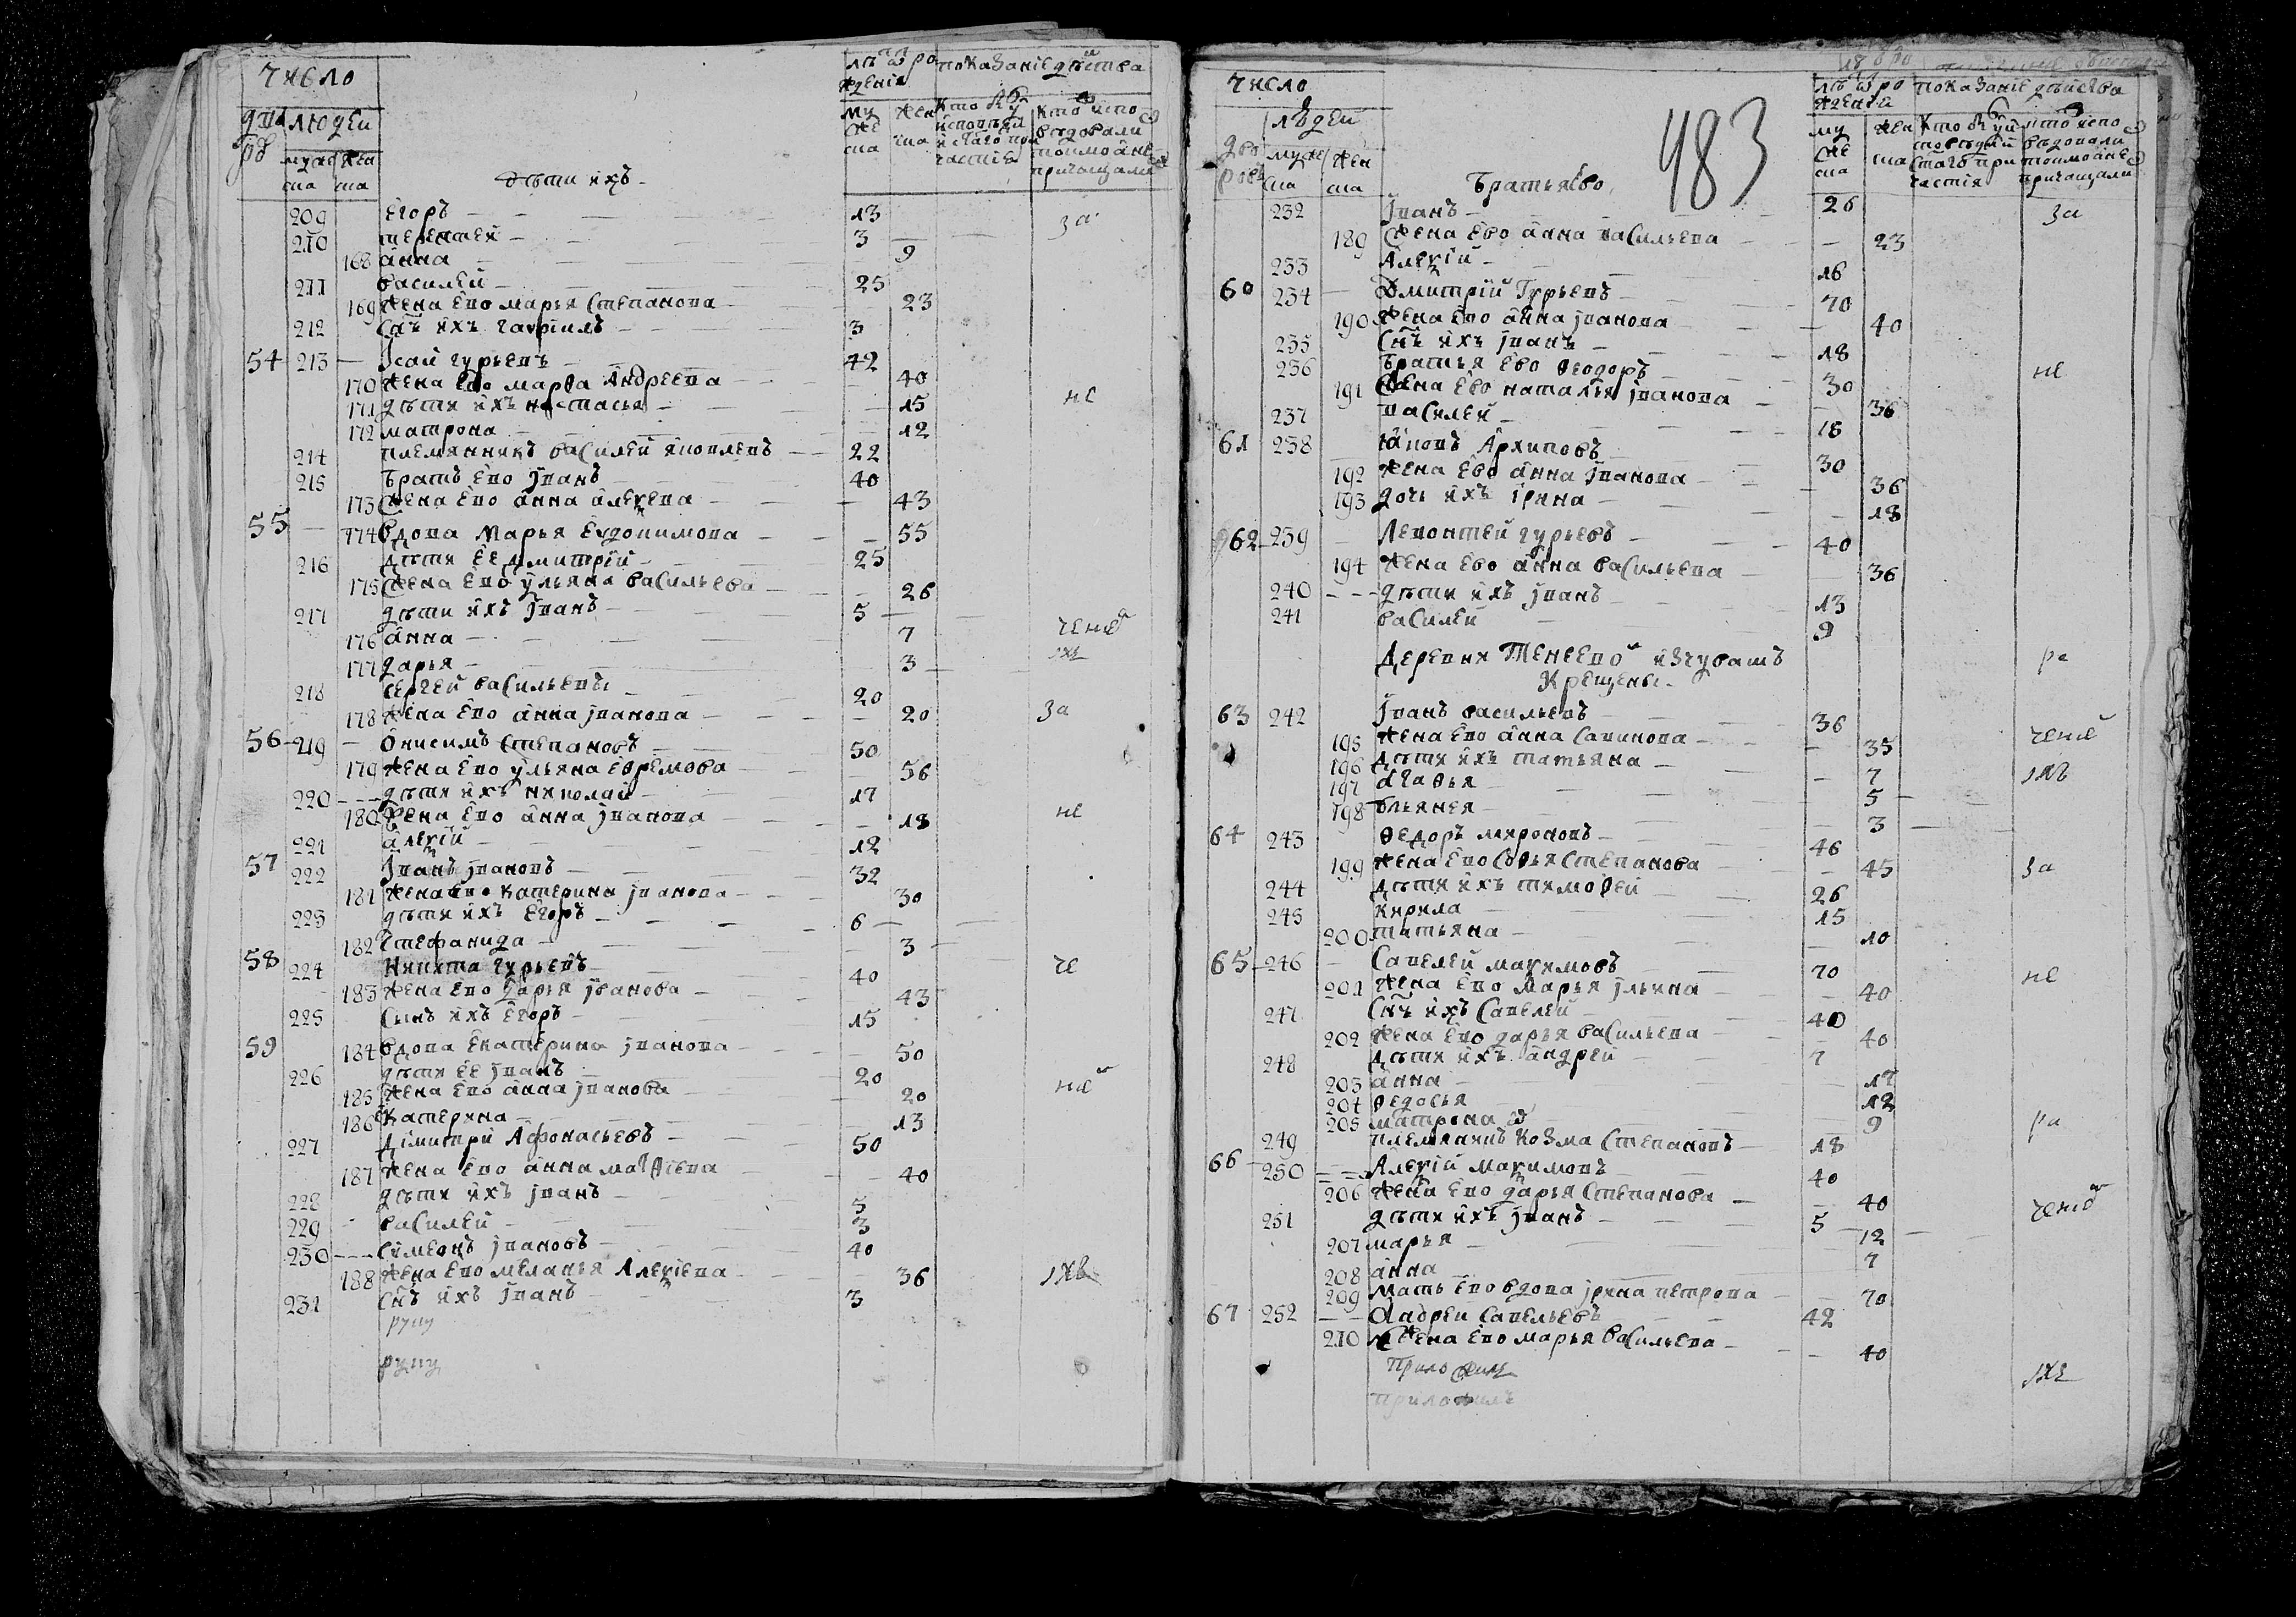 число
людей
муже ска
жен ска
дѣти ихъ
209 Егоръ 13 за
210 терентей 3
168 анна 9
211 василей 25
169 жена ево марья Степанова 23
212 Снъ ихъ гаврiилъ 3
54 213 Исай гурьевъ 42
170 жена ево марѳа Андреева 40
171 дѣти ихъ настасья 15 не
172 матрона 12
214 племянникъ василей яковлевъ 22
215 братъ ево iванъ 40
173 жена ево анна алеѯева 43
55 174 вдова Марья Евдокимова 55
216 дѣти ее дмитрiй 25
175 жена ево ульяна васильева 26
217 дѣти ихъ iванъ 5
176 анна 7
177 дарья 3
218 сергей васильевъ 20
178 жена ево анна iванова 20 за
56 219 Онисимъ Степановъ 50
179 жена ево ульяна Ефремова 56
220 дѣти ихъ николай 17
180 жена ево анна iванова 18 не
221 алеѯiй 12
57 222 Iванъ iвановъ 32
181 жена ево катерина iванова 30
223 дѣти ихъ Егоръ 6
182 Стефанида 3
58 224 Никита гурьевъ 40 че
183 жена ево дарья iванова 43
225 Сынъ ихъ Егоръ 15
59 184 вдова Екатерина iванова 50
226 дѣти ее iванъ 20
185 жена ево анна iванова 20
186 Катерина 13
227 Димитри Афонасьевъ 50
187 жена ево анна матѳiева 40
228 дѣти ихъ iванъ 5
229 василей 3
230 Симеонъ iвановъ 40
188 жена ево меланья Алеѯiева 36
231 Снъ ихъ iванъ 3
руку
руку
число
людей
дворовъ
муже ска
жен ска
483
Братья ево
232 Iванъ 26 за
189 жена ево анна васильева 23
233 Алеѯiй 16
60 234 Дмитрiй Гурьевъ 70
190 жена ево анна iванова 40
235 Снъ ихъ iванъ 18
236 Братья ево Ѳеодоръ 30 не
191 жена ево наталья iванова 36
237 василей 18
61 238 Iаковъ Архиповъ 30
192 жена ево анна iванова 36
193 дочь ихъ iрина 18
62 239 Левонтей гурьевъ 40
194 жена ево анна васильева 36
240 дѣти ихъ iванъ 13
241 василей 9
Деревни Тенеевой изчувашъ ра
Крещены
63 242 Iванъ васильевъ 36
195 жена ево анна Савинова 35
196 дѣти ихъ татьяна 7
197 агаѳья 5
198 ульянея 3
64 243 Ѳедоръ мироновъ 46
199 жена ево Соѳья Степанова 45 за
244 дѣти ихъ тимоѳей 26
245 кирила 15
200 татьяна 10
65 246 Савелей маѯимовъ 70
201 жена ево марья ильина 40 не
247 Снъ ихъ Савелей 40
202 жена ево дарья васильева 40
248 дѣти ихъ андрей 7
203 анна 17
204 ѳедосья 12
205 матрона 9
249 племяникъ козма Степановъ 18 ра
66 250 Алеѯiй маѯимовъ 40
206 жена ево дарья Степанова 40
251 дѣти ихъ iванъ 5
207 марья 12
208 анна 7
209 мать ево вдова iрина петрова 70
67 252 Андреи Савельевъ 42
210 жена ево марья васильева 40
Приложилъ
приложилъ